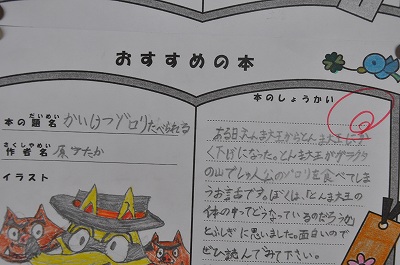 おすすめの本
本の題名 かいけつゾロリたべられる
だいめい
作者名 原ゆたか
さくしゃめい
イラスト
本のしょうかい
ある日、えんま大王からとんま大王に
く下げになった。とんま大王がガラクタ
の山でしゅ人公のゾロリを食べてしま
うお話です。ぼくは、「とんま大王の
体の中ってどうなっているのだろうか」
とふしぎに思いました。面白いので
ぜひ読んでみて下さい。